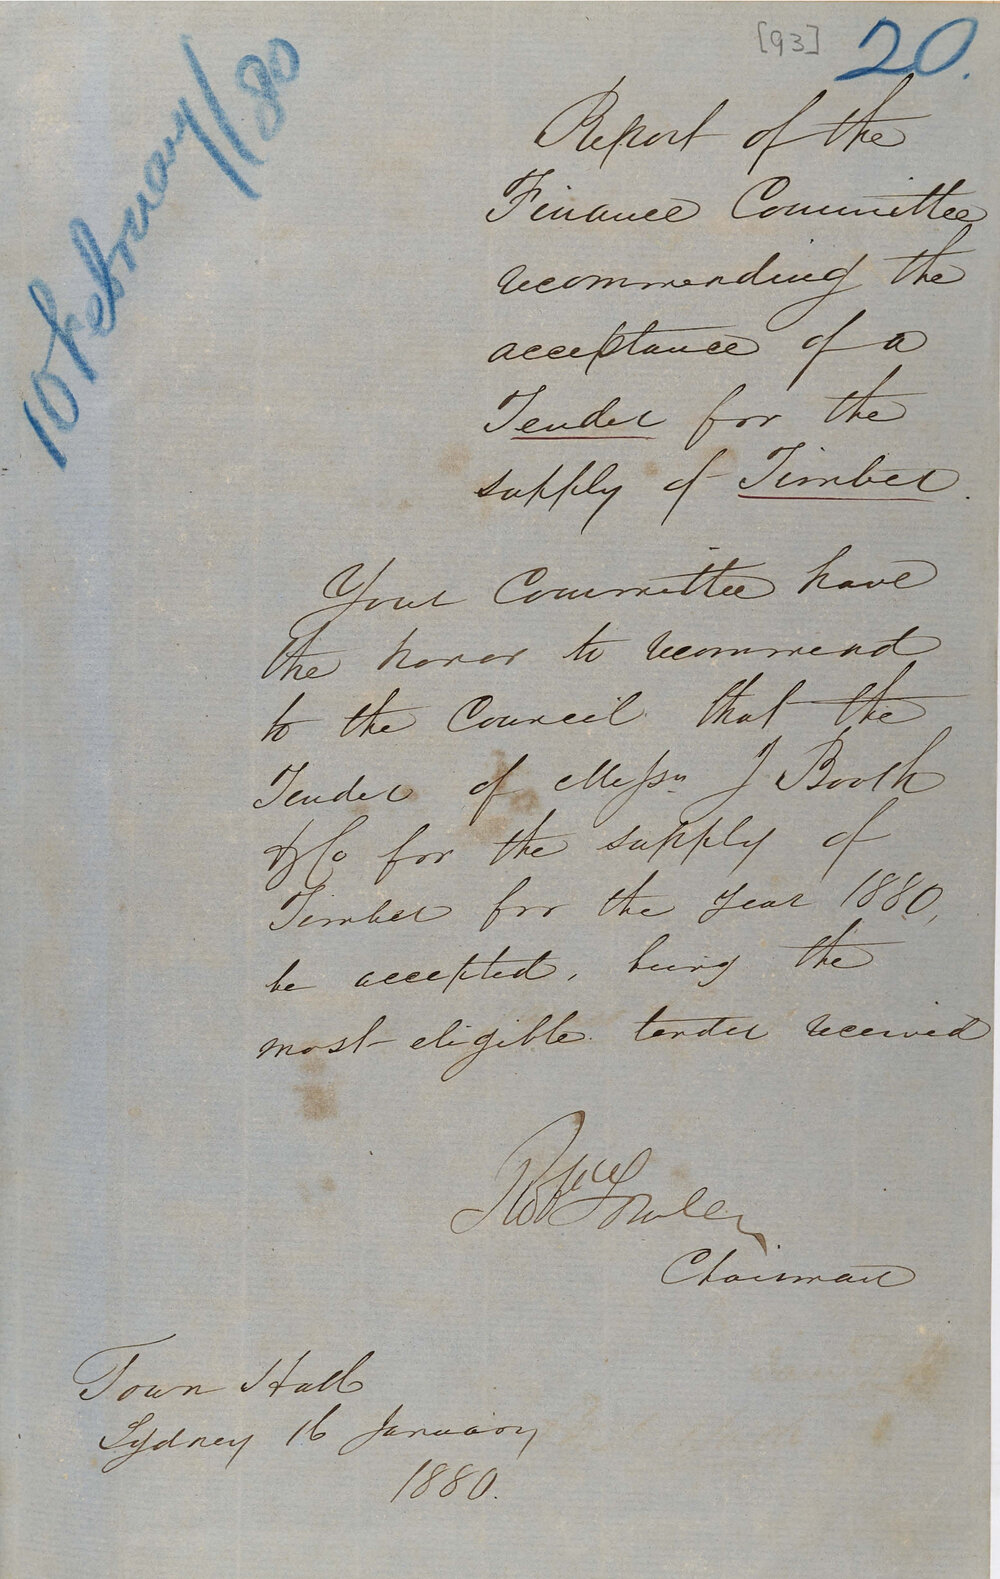 [93] 20.
10 February/80
Report of the
Finance Committee
recommending the
acceptance of a
Tender for the
supply of Timber.
Your Committee have
the honor to recommend
to the Council that the
Tender of Messrs J Booth
& Co for the supply of
Timber for the year 1880,
be accepted, being the
most eligible tender received
Robt Fowler
Chairman
Town Hall
Sydney 16 January
1880.